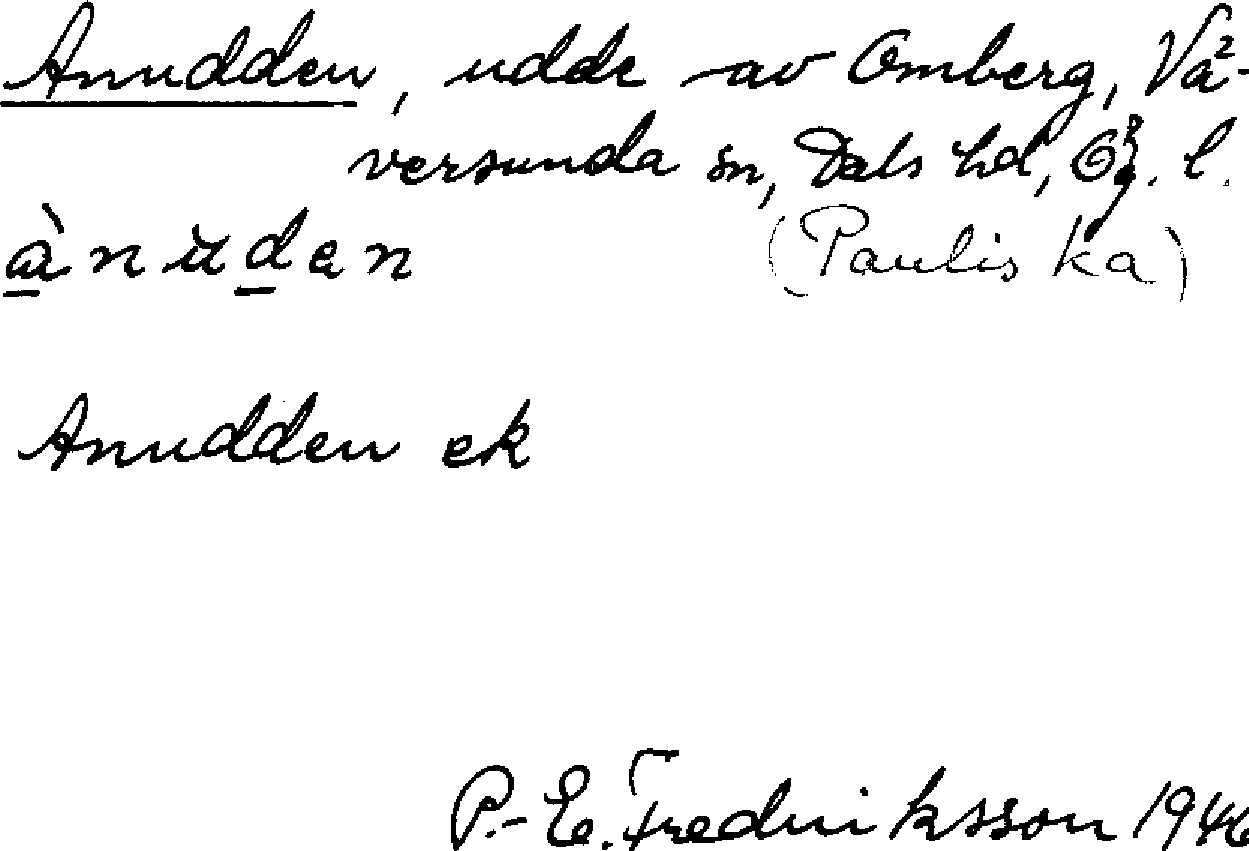 Anudden, udde av Omberg, Vä-
versunda sn, Dals hd, Ög. l.
ànuden (Pauliska)
Anudden ek
P.-E. Fredriksson 1946